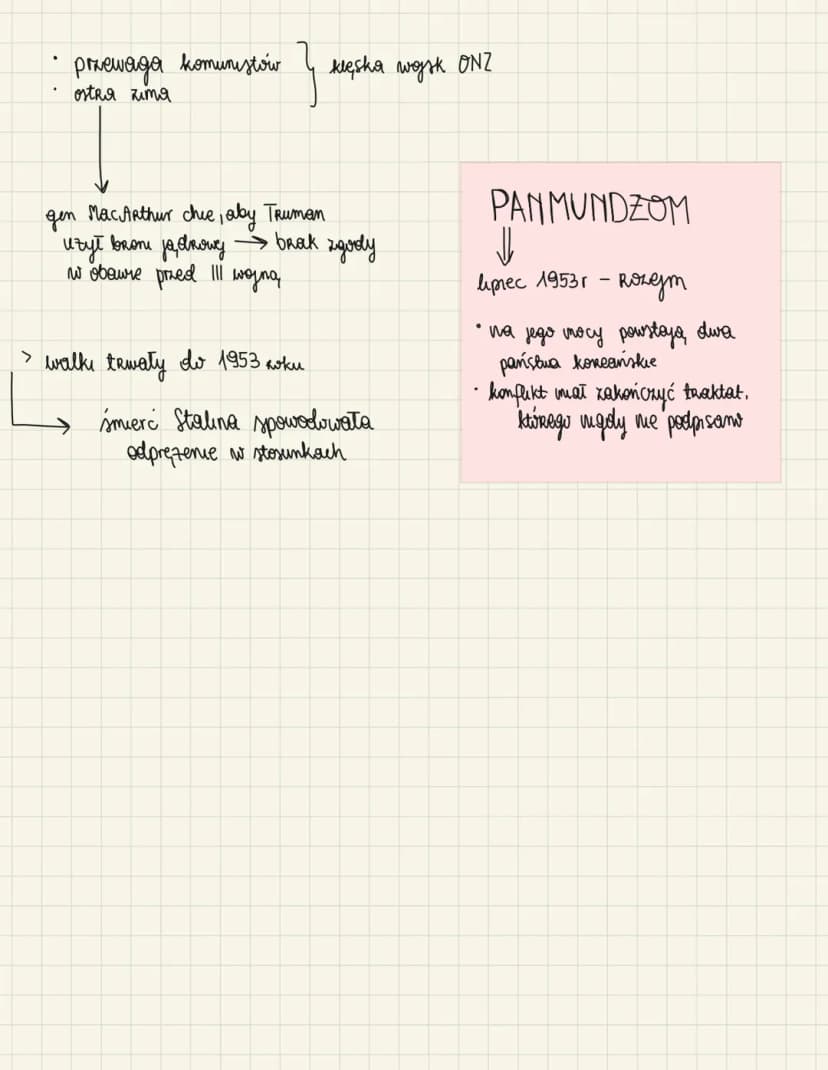 · przewaga komunistów } klęska wojsk ONZ
· ostra zima
gen MacArthur chce, aby Truman
użył broni jądrowej → brak zgody
w obawie przed III wojną
> walki trwały do 1953 roku
→ śmierć Stalina spowodowała
odprężenie w stosunkach
PANMUNDŻOM
⇓
lipiec 1953r - Rozejm
· na jego mocy powstają dwa
państwa koreańskie
· konflikt miał zakończyć traktat,
którego nigdy nie podpisano